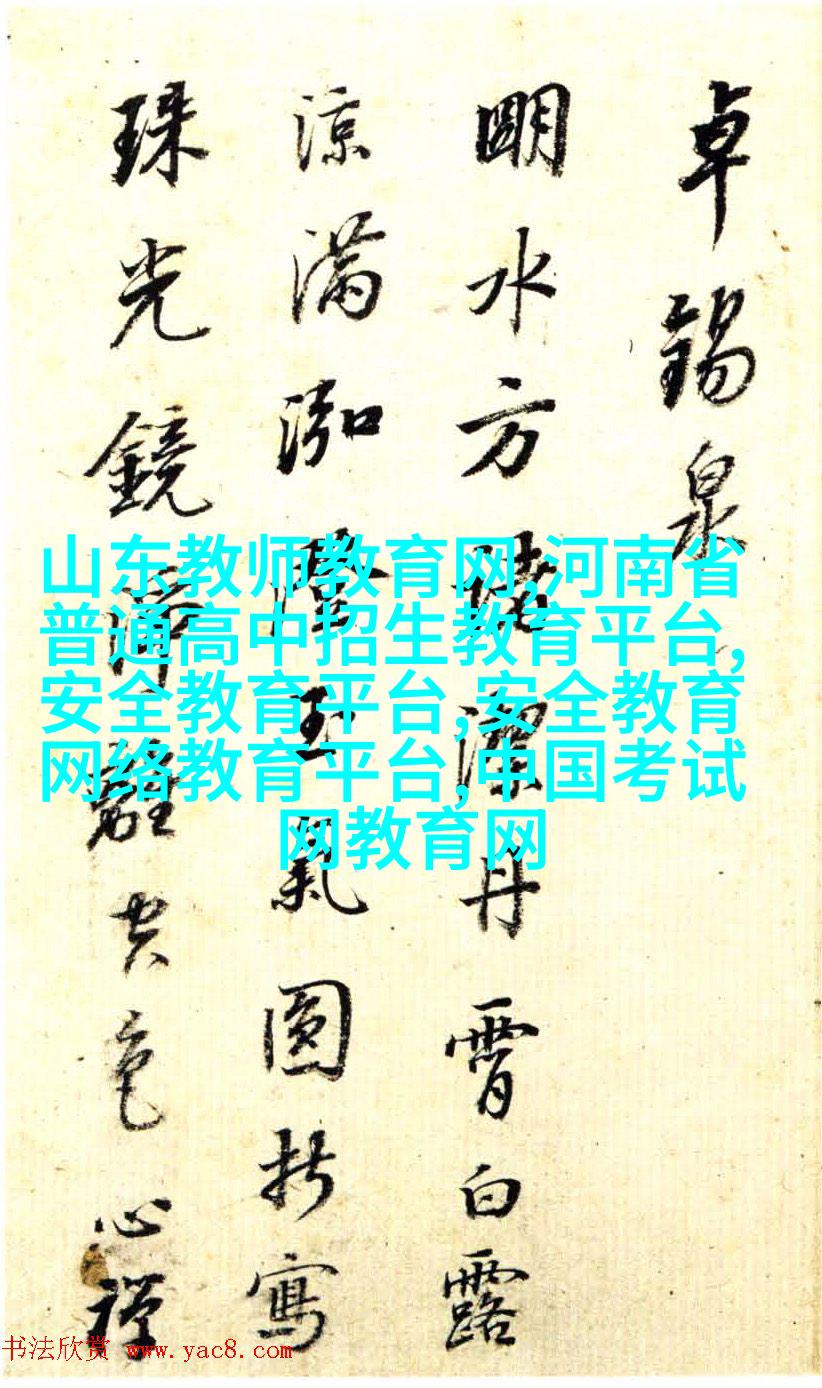 卓錫泉
朙水方諸潔丹霄白露
涼滿泓澄玉氣圓折寫
珠光鏡淨離空色心禪
山东教师教育网,河南省
普通高中招生教育平台,
安全教育平台,安全教育
网络教育平台,中国考试
网教育网
书法欣赏 www.yac8.com